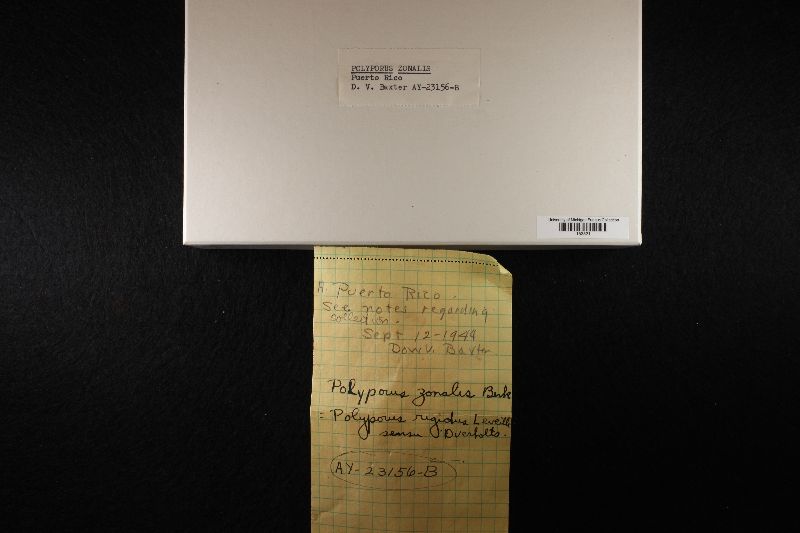 POLYPORUS ZONALIS
Puerto Rico
D. V. Baxter AY-23156-B
University of Michigan Fungus Collection
A. Puerto Rico.
See notes regarding
collection.
Sept 12-1944
Dow V. Baxter
Polyporus zonalis Berk
= Polyporus rigidus Leveille
sensu Overholts.
AY-23156-B